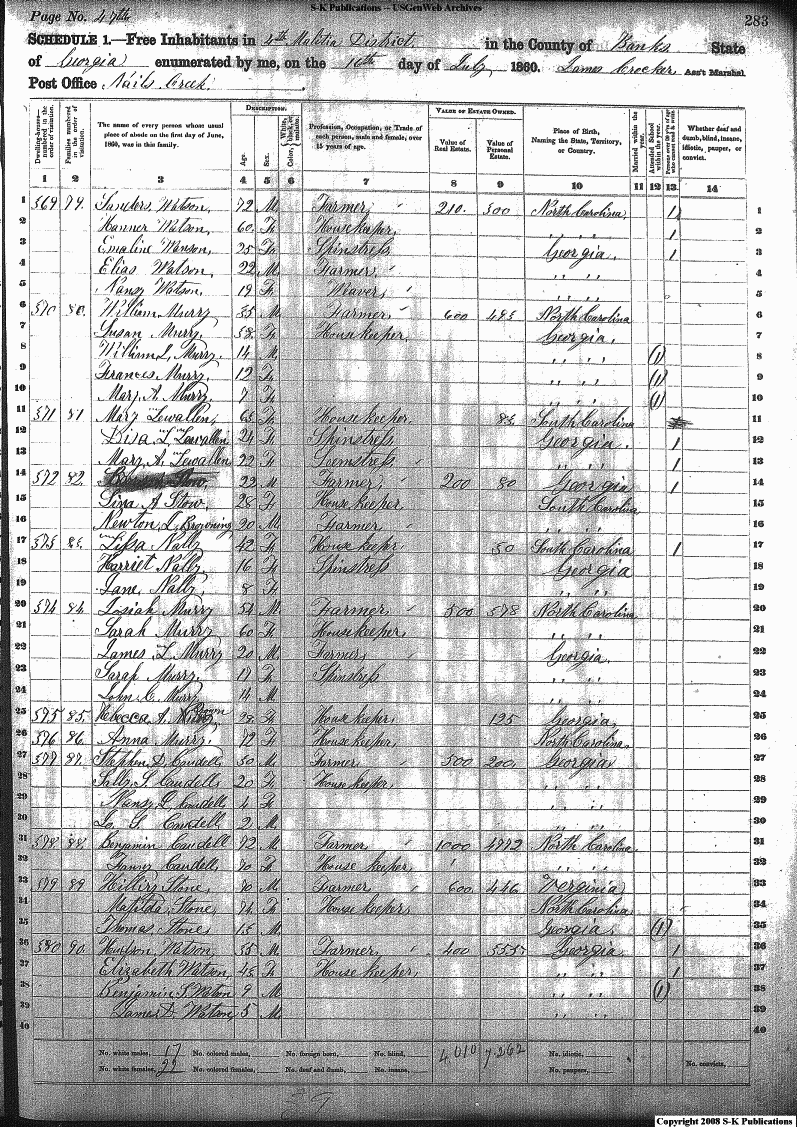 S-K Publications -- USGenWeb Archives
Page No. 47th
283
SCHEDULE 1.—Free Inhabitants in 4th Malitia District in the County of Banks State
of Georgia enumerated by me, on the 16th day of July 1860. James Crocker Ass't Marshal.
Post Office Nails Creek
DESCRIPTION. VALUE OF ESTATE OWNED.
Dwelling-houses—numbered in the order of visitation. Families numbered in the order of visitation. The name of every person whose usual place of abode on the first day of June, 1860, was in this family. Age. Sex. Color, White, black, or mulatto. Profession, Occupation, or Trade of each person, male and female, over 15 years of age. Value of Real Estate. Value of Personal Estate. Place of Birth, Naming the State, Territory, or Country. Married within the year. Attended School within the year. Persons over 20 y'rs of age who cannot read & write. Whether deaf and dumb, blind, insane, idiotic, pauper, or convict.
1 2 3 4 5 6 7 8 9 10 11 12 13 14
1 569 79. Sanders Watson, 72 M. Farmer 210. 300 North Carolina 1 1
2 Hanner Watson 60. F. House keeper, " " 1 2
3 Emaline Wanson, 25 F. Spinstress Georgia 1 3
4 Elias Watson, 22 M. Farmer, " " 4
5 Nansy Watson, 19 F. Weaver, " " 5
6 570 80. William Murry M. Farmer 600 North Carolina 6
7 Susan Murry, F. House keeper, Georgia. 7
8 William L. Murry. 14 M. " " (1) 8
9 Frances Murry, 12 F. " " (1) 9
10 Mary A. Murry. 7 F. " " (1) 10
11 571 81 Mary Lewallen, F. House keeper, South Carolina 11
12 Lisa L. Lewallen 24 F. Spinstress Georgia. 1 12
13 Mary A. Lewallen 22 F. Seemstress " " 1 13
14 572 82. Stow, 22 M Farmer, 200 80 Georgia 1 14
15 A Stow, 28 F. House keeper South Carolina 15
16 Newton L. Browning M. Farmer 16
17 573 Nally 42 F. House keeper 50 South Carolina 1 17
18 Harriet Nally 16 F. Spinstress Georgia 18
19 Jane, Nally, 8 F. 19
20 574 84. Josiah Murry 54 M. Farmer 500 578 North Carolina 20
21 Sarah Murry 60 F. House keeper, " " 21
22 James L. Murry 20 M. Farmer, Georgia. 22
23 Sarah Murry. 17 F. Spinstress " " 23
24 John C. Murry M. " " 24
25 575 85. Rebecca A. Brown 28 F. House keeper 125 Georgia, 25
26 576 86. Anna Murry. 72 F. House keeper, North Carolina 26
27 577 87. Stephen D. Caudell 30 M. Farmer, 500 200 Georgia 27
28 Sally S. Caudell 20 F. House keeper, " " 28
29 Nansy L. Caudell 4 F. " " 29
30 G. Caudell 2 M. " " 30
31 578 88. Benjamin Caudell 72 M. Farmer 1000 4772 North Carolina, 31
32 Fanny Caudell, 70 F. House keeper, " " 32
33 579 89. Stone, 70 M. Farmer 600 446 Verginia 33
34 Matilda Stone, F. House keeper, North Carolina 34
35 Thomas Stone, M. Georgia (1) 35
36 580 90. Watson, 55 M. Farmer 400 555 Georgia 1 36
37 Elizabeth Watson, 45 F. House keeper, " " 1 37
38 Benjamin S. Watson 9 M. " " (1) 38
39 James D. Watson 5 M. " " 39
40 40
No. white males, 17 No. colored males, No. foreign born, No. blind, 4010 7.262 No. idiotic,
No. white females, 22 No. colored females, No. deaf and dumb, No. insane, No. paupers, No. convicts,
Copyright 2008 S-K Publications